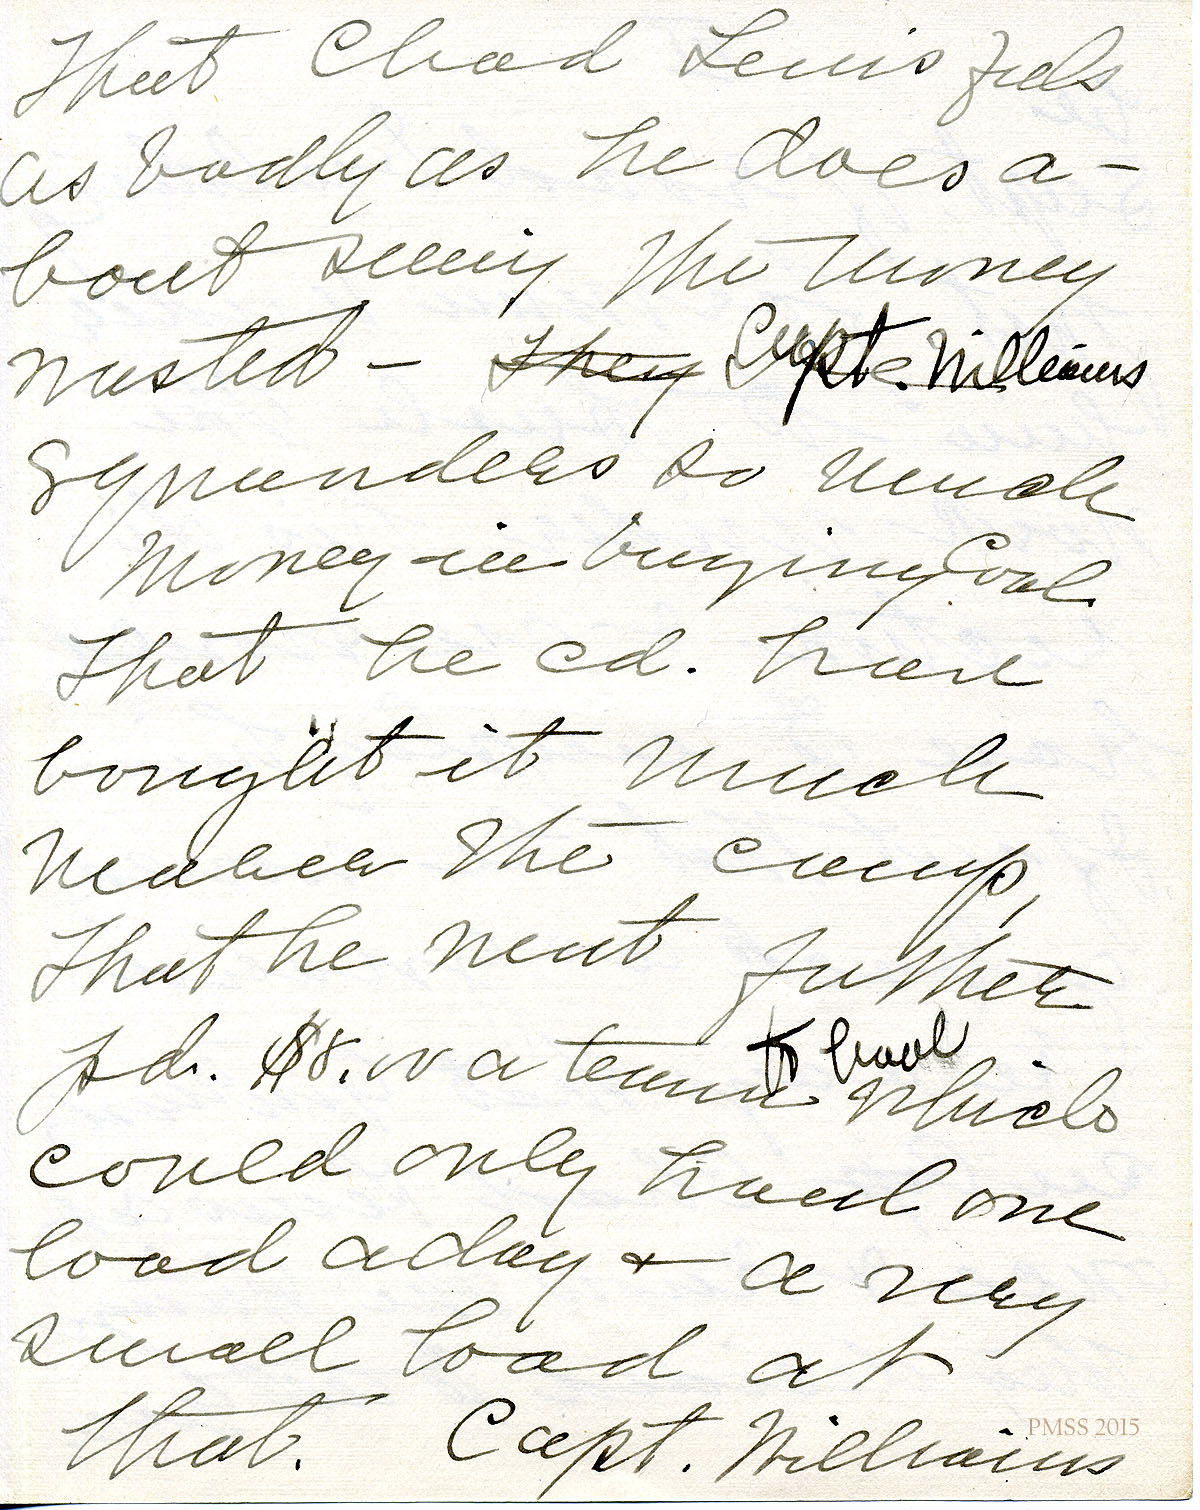 that Chad Lewis feels
as badly as he does a-
bout seeing the money
wasted - They Capt. Williams
squanders so much
money in buying Coal
that he cd. have
bought it much
nearer the camp,
that he went further
pd. $8.00 a team to haul which
could only haul one
load a day & a very
small load at
that. Capt. Williams
PMSS 2015